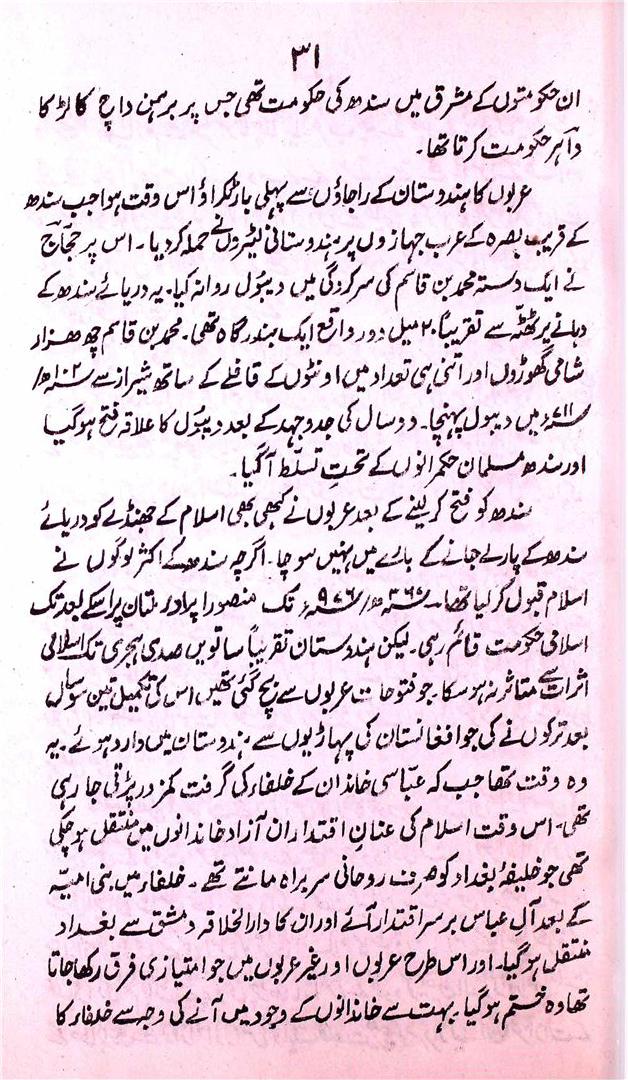 ۳۱
ان حکومتوں کے مشرق میں سندھ کی حکومت تھی جس پر برہمن داچ کا لڑکا
داہر حکومت کرتا تھا۔
عربوں کا ہندوستان کے راجاؤں سے پہلی بار ٹکراؤ اس وقت ہوا جب سندھ
کے قریب بصرہ کے عرب جہازوں پر ہندوستانی لٹیروں نے حملہ کر دیا۔ اس پر حجاج
نے ایک دستہ محمد بن قاسم کی سرکردگی میں دیبول روانہ کیا۔ یہ دریائے سندھ کے
دہانے پر ٹھٹہ سے تقریباً ۲۰ میل دور واقع ایک بندرگاہ تھی۔ محمد بن قاسم چھ ھزار
شامی گھوڑوں اور اتنی ہی تعداد میں اونٹوں کے قافلے کے ساتھ شیراز سے ۱۰۲ھ/
۷۱۱ء میں دیبول پہنچا۔ دو سال کی جدوجہد کے بعد دیبول کا علاقہ فتح ہو گیا
اور سندھ مسلمان حکمرانوں کے تحت تسلّط آگیا۔
سندھ کو فتح کر لینے کے بعد عربوں نے کبھی بھی اسلام کے جھنڈے کو دریائے
سندھ کے پار لے جانے کے بارے میں نہیں سوچا۔ اگرچہ سندھ کے اکثر لوگوں نے
اسلام قبول کر لیا تھا۔ ۳۶۷ھ/۹۷۶ء تک منصورا پر اور ملتان پر اسکے بعد تک
اسلامی حکومت قائم رہی۔ لیکن ہندوستان تقریباً ساتویں صدی ہجری تک اسلامی
اثرات سے متاثر نہ ہو سکا۔ جو فتوحات عربوں سے بچ گئی تھیں اس کی تکمیل تین سو سال
بعد ترکوں نے کی جو افغانستان کی پہاڑیوں سے ہندوستان میں وارد ہوئے۔ یہ
وہ وقت تھا جب کہ عباسی خاندان کے خلفاء کی گرفت کمزور پڑتی جا رہی
تھی۔ اس وقت اسلام کی عنانِ اقتدار ان آزاد خاندانوں میں منتقل ہو چکی
تھی جو خلیفۂ بغداد کو صرف روحانی سربراہ مانتے تھے۔ خلفاء میں بنی امیہ
کے بعد آلِ عباس برسر اقتدار آئے اور ان کا دارالخلافہ دمشق سے بغداد
منتقل ہو گیا۔ اور اس طرح عربوں اور غیر عربوں میں جو امتیازی فرق رکھا جاتا
تھا وہ ختم ہو گیا۔ بہت سے خاندانوں کے وجود میں آنے کی وجہ سے خلفاء کا